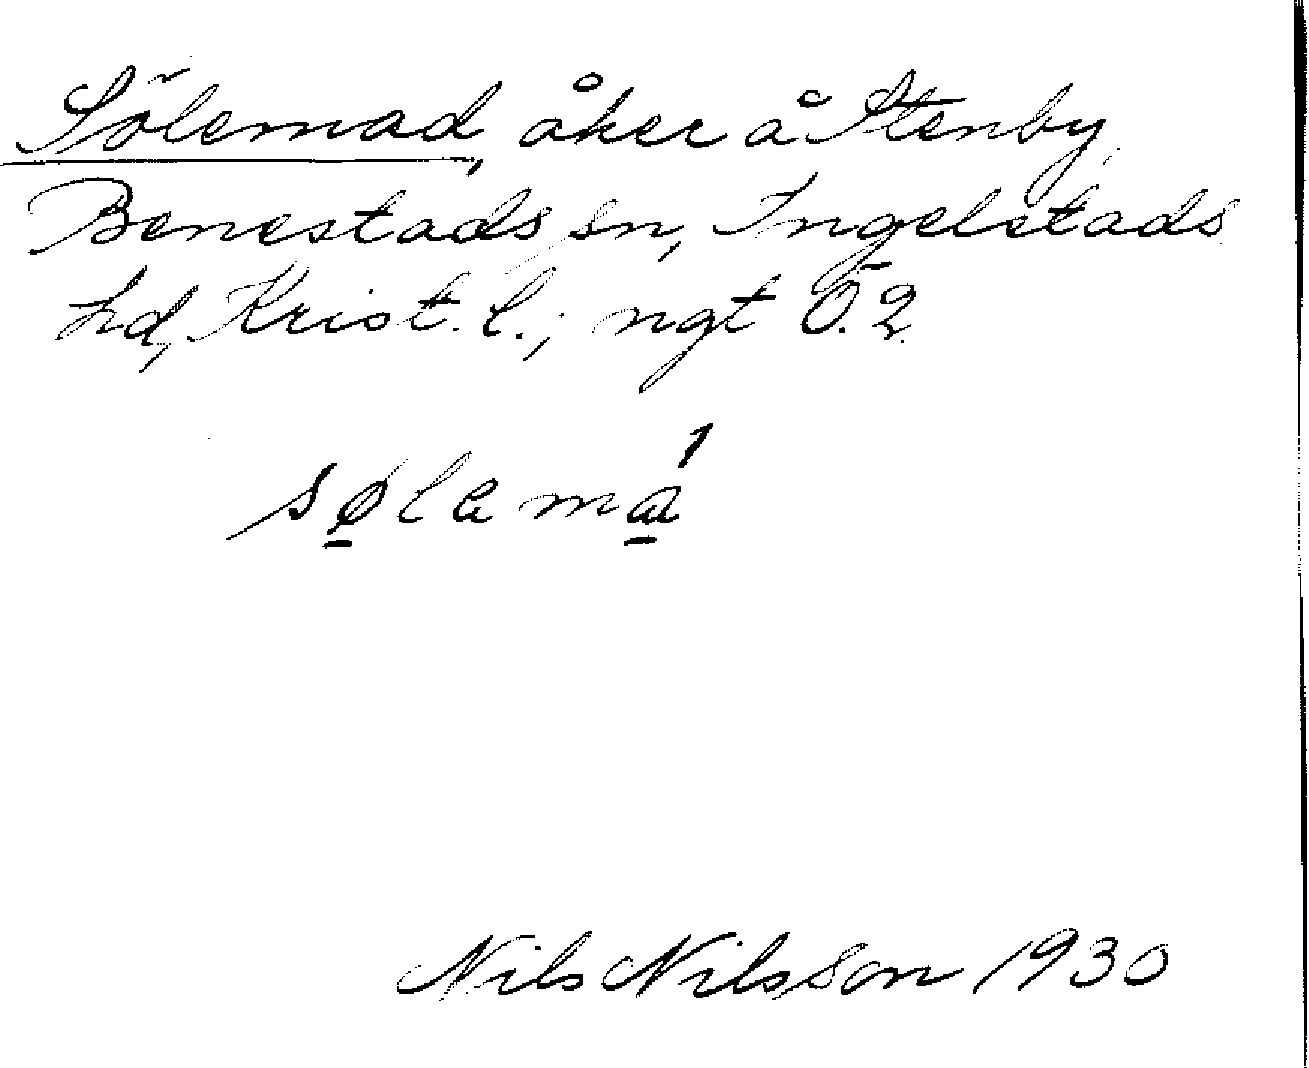 Sölemad, åker å Stenby,
Benestads sn, Ingelstads
hd, Krist. l.; ngt Ö. 2.
sølemá
Nils Nilsson 1930